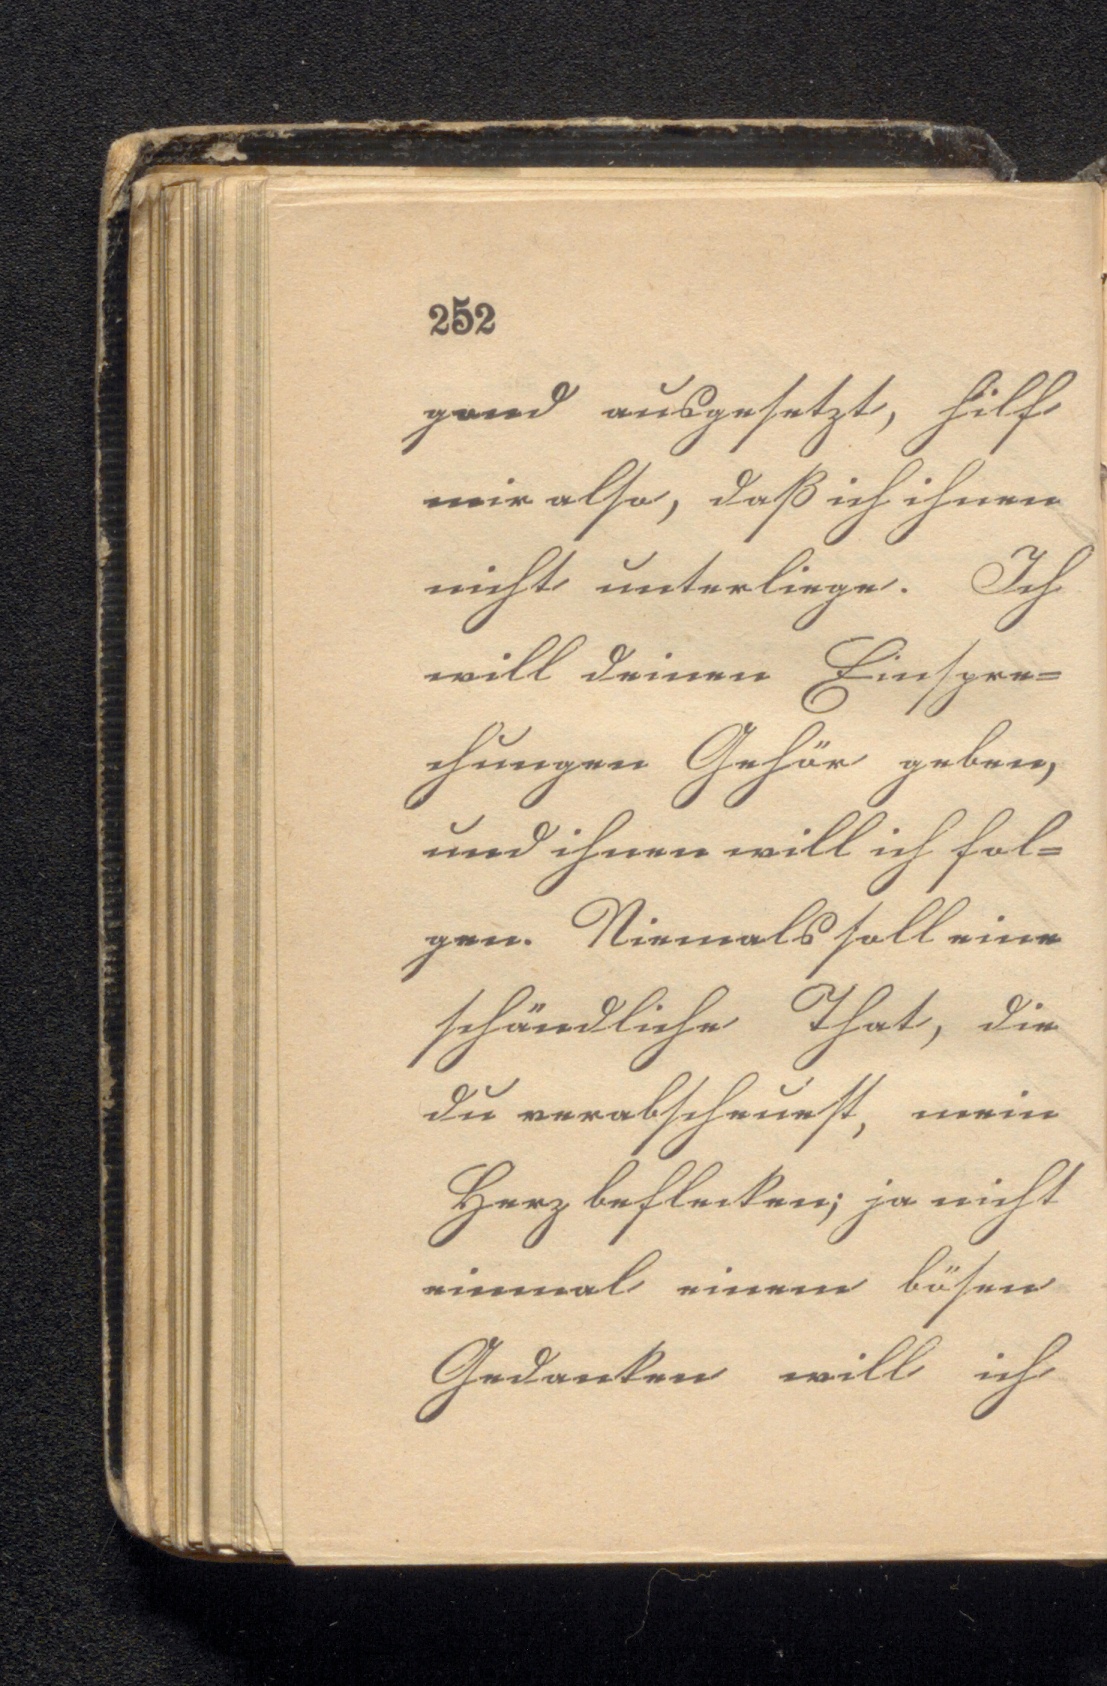 252
gend ausgesetzt, hilf
mir also, daß ich ihnen
nicht unterliege. Ich
will deinen Einspre=
chungen Gehör geben,
und ihnen will ich fol=
gen. Niemals soll eine
schändliche That, die
du verabscheuest, mein
Herz beflecken; ja nicht
einmal einem bösen
Gedanken will ich